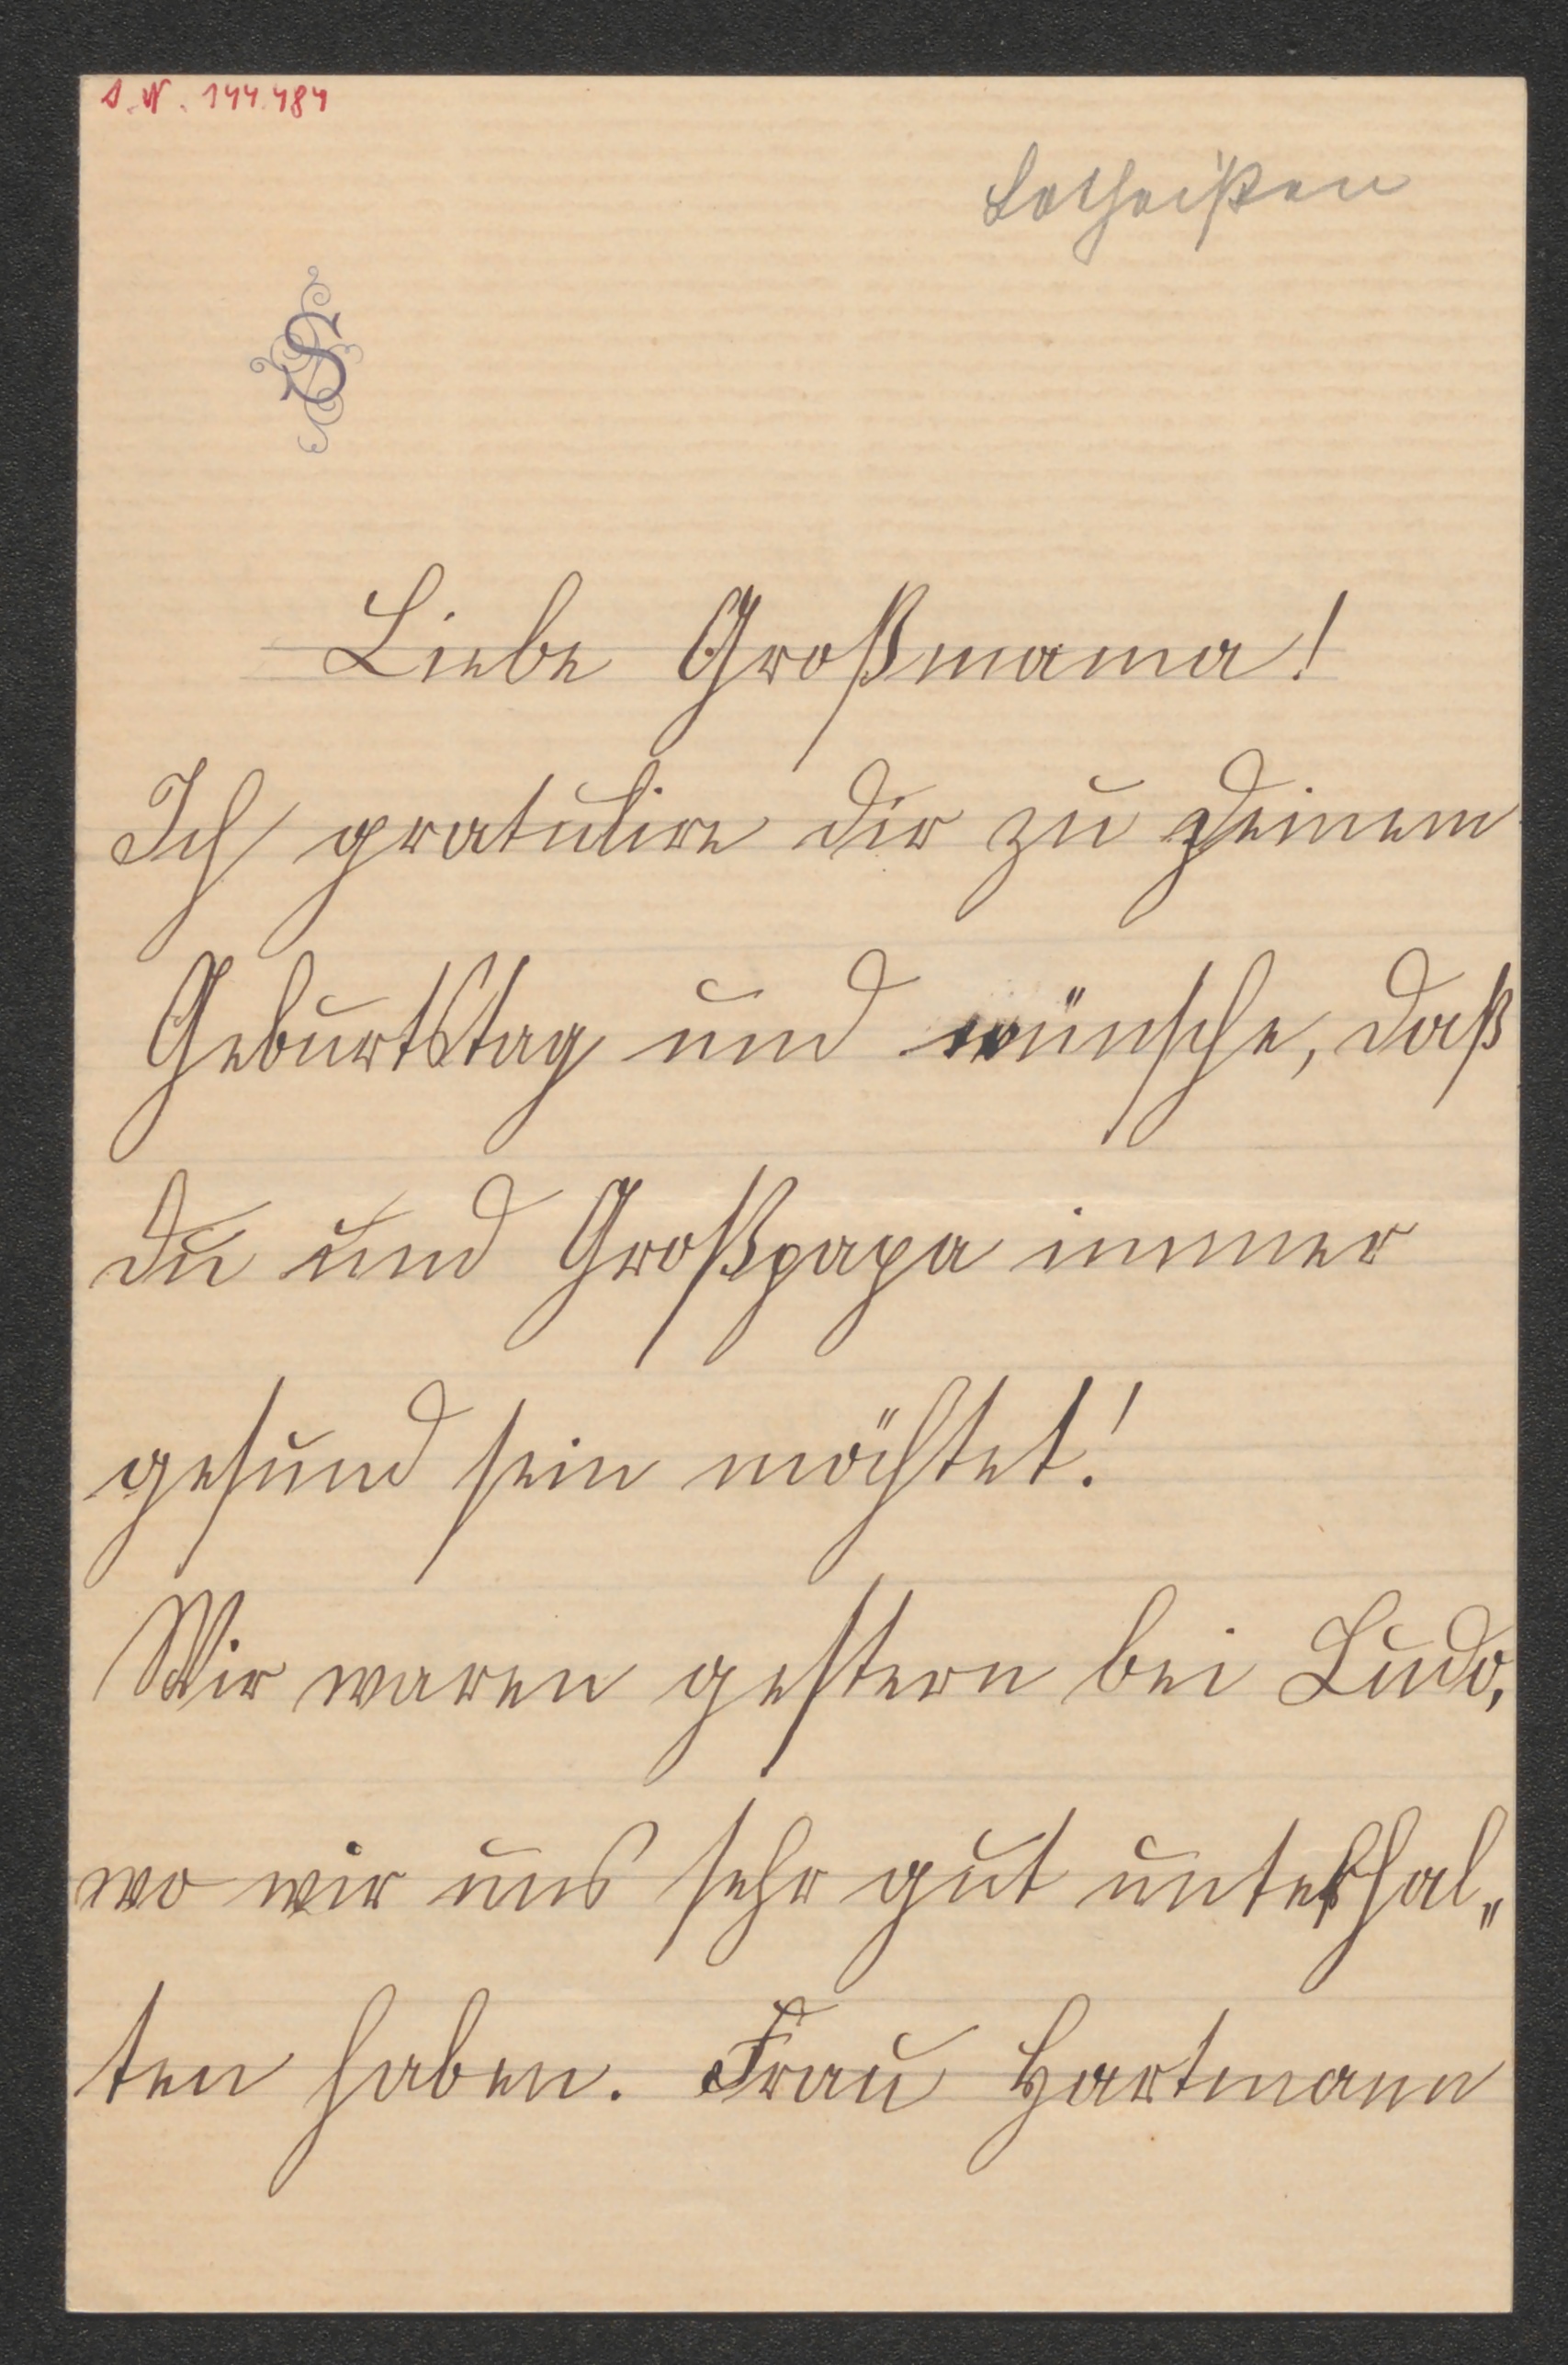 S. N. 144.484
Lotheißen
Liebe Großmama!
Ich gratulire dir zu deinem
Geburtstag und wünsche, daß
du und Großpapa immer
gesund sein möchtet!
Wir waren gestern bei Ludo,
wo wir uns sehr gut unterhal„
ten haben. Frau Hartmann